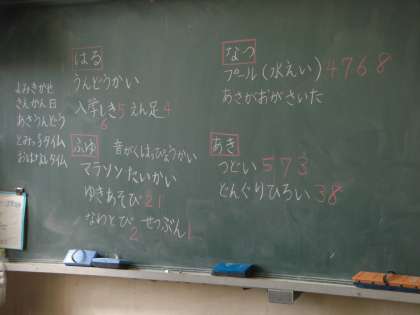 はる
うんどうかい
入学しき5 えん足4
6
よみきかせ
さんかん日
あさうんどう
とみっ子タイム
おはなしタイム
ふゆ 音がくはっぴょうかい
マラソンたいかい
ゆきあそび21
なわとび せつぶん1
2
なつ
プール(水えい)4768
あさがおがさいた
あき
つどい573
どんぐりひろい38